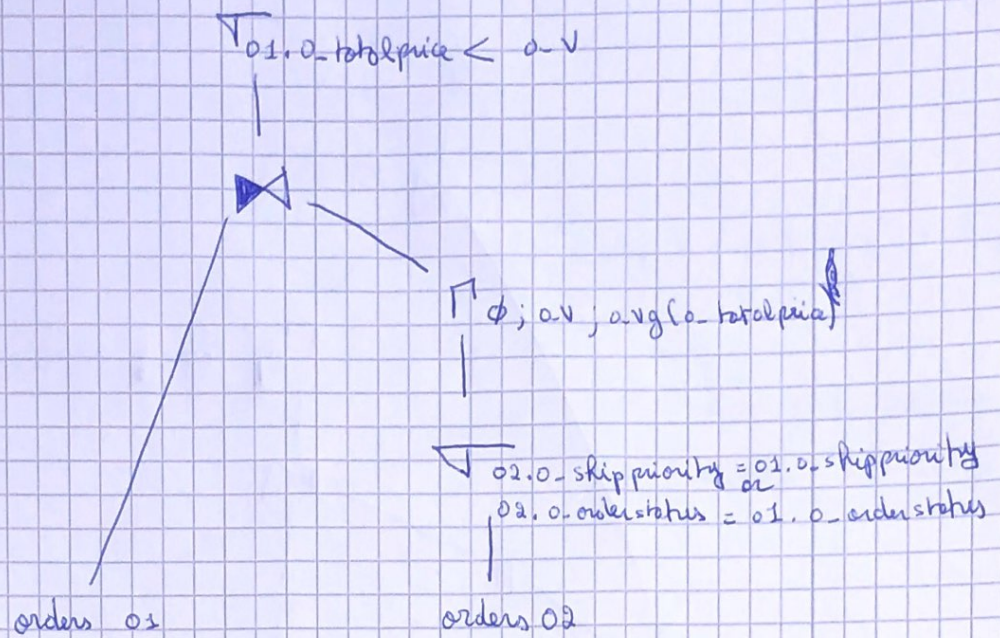 σ o1.o_totalprice < a_v
Γ ϕ ; av ; avg(o_totalprice)
σ o2.o_shippriority = o1.o_shippriority
or
o2.o_orderstatus = o1.o_orderstatus
orders o1
orders o2